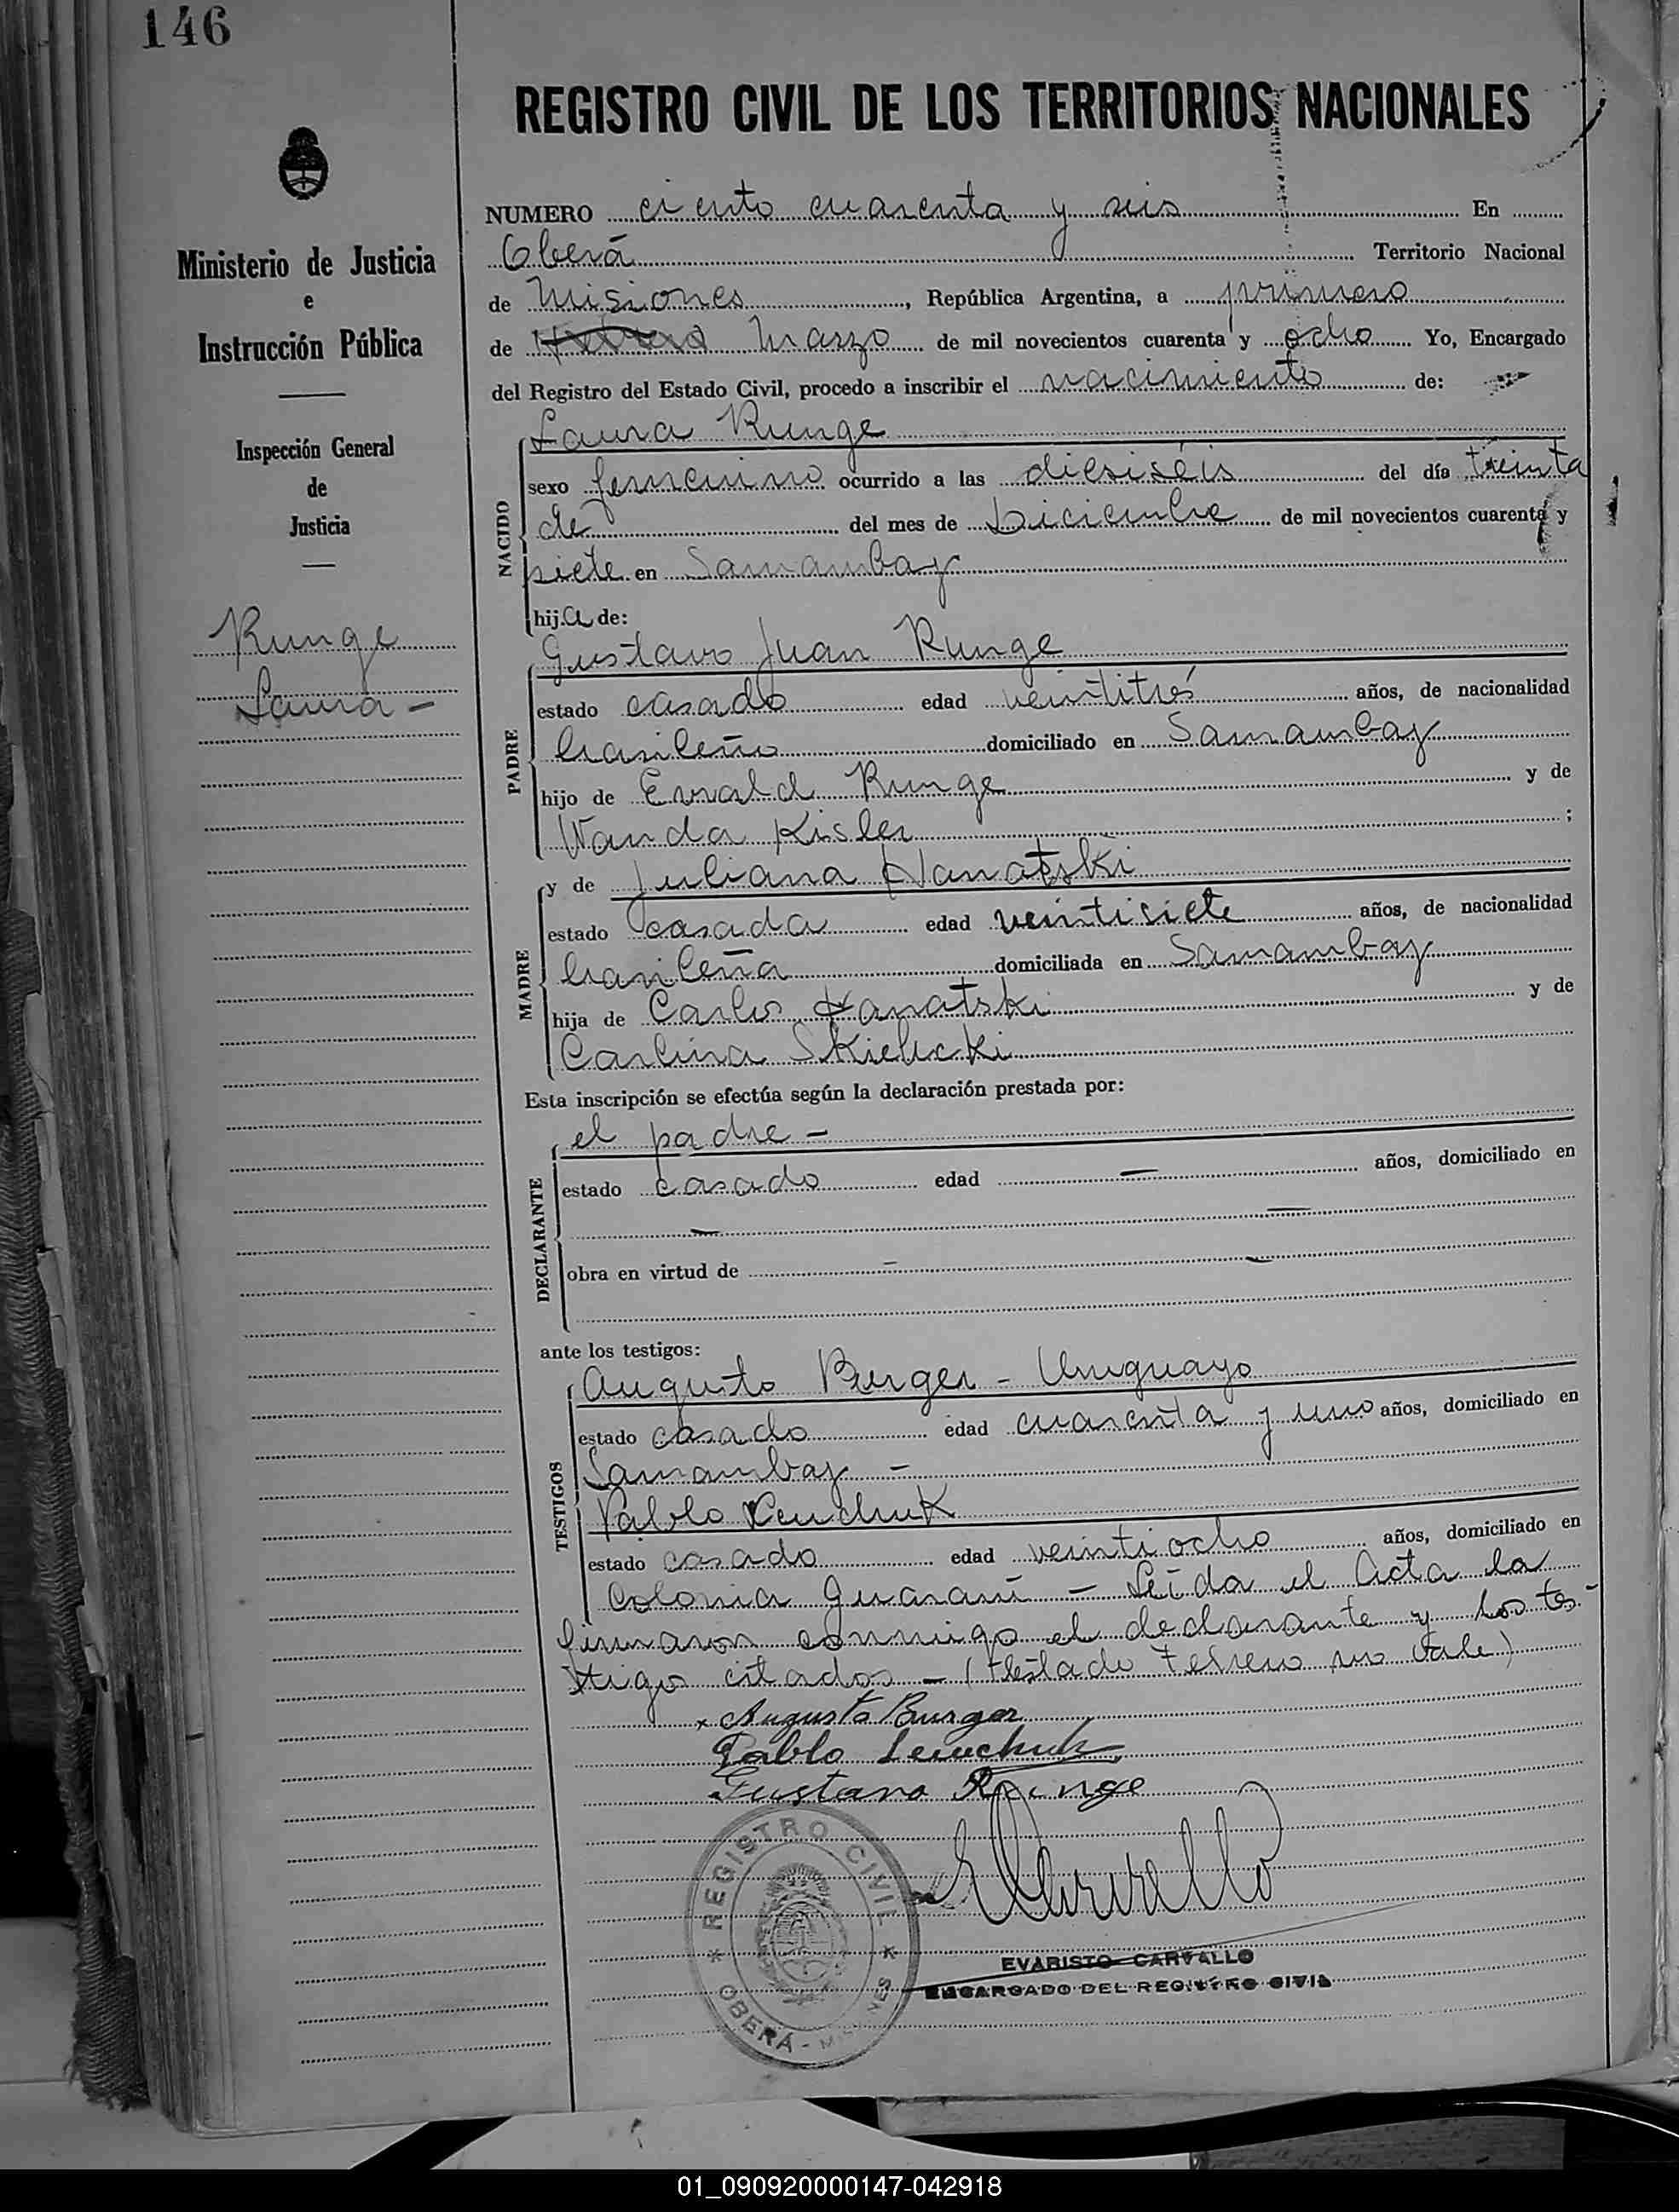 146
REGISTRO CIVIL DE LOS TERRITORIOS NACIONALES
Ministerio de Justicia
e
Instrucción Pública
Inspección General
de
Justicia
Runge
Laura -
NUMERO ciento cuarenta y seis En
Oberá Territorio Nacional
de Misiones, República Argentina, a primero
de Febrero Marzo de mil novecientos cuarenta y ocho Yo, Encargado
del Registro del Estado Civil, procedo a inscribir el nacimiento de:
Laura Runge
NACIDO
sexo femenino ocurrido a las dieciséis del día treinta
de del mes de Diciembre de mil novecientos cuarenta y
siete en Samambay
hija de:
Gustavo Juan Runge
PADRE
estado casado edad veintitrés años, de nacionalidad
brasileño domiciliado en Samambay
hijo de Ewald Runge y de
Wanda Kisler ;
y de Juliana Hanatski
MADRE
estado casada edad veintisiete años, de nacionalidad
brasileña domiciliada en Samambay
hija de Carlos Hanatski y de
Carlina
Esta inscripción se efectúa según la declaración prestada por:
el padre -
DECLARANTE
estado casado edad — años, domiciliado en
— —
obra en virtud de - —
ante los testigos:
Augusto Burger - Uruguayo
TESTIGOS
estado casado edad cuarenta y uno años, domiciliado en
Samambay -
Pablo
estado casado edad veintiocho años, domiciliado en
Colonia Guaraní - Leída el Acta la
firmaron conmigo el declarante y los tes-
tigo citados - (testado Febrero no vale)
x Augusto Burger
Pablo Lewchuk
Gustavo Runge
REGISTRO CIVIL
* OBERÁ - MISIONES *
EVARISTO CARVALLO
ENCARGADO DEL REGISTRO CIVIL
01_090920000147-042918